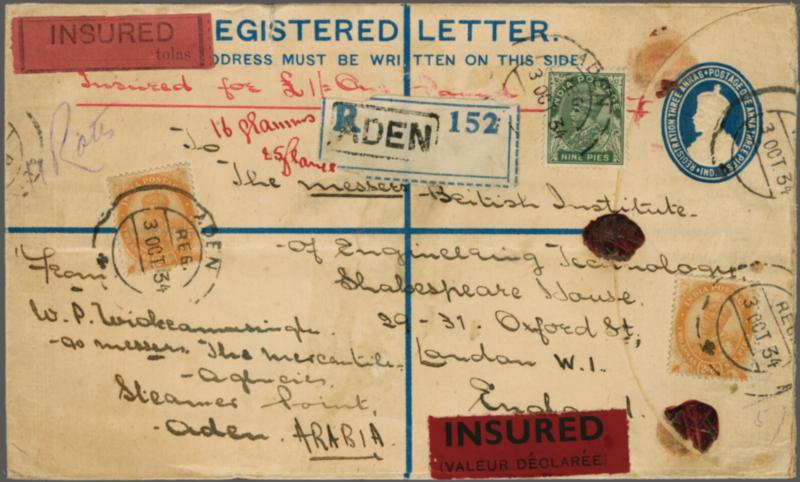 INSURED
tolas
REGISTERED LETTER.
ADDRESS MUST BE WRITTEN ON THIS SIDE
Insured for £1/= One Pound
16 gramms
Rates
To
R ADEN 152
INDIA POSTAGE
NINE PIES
REGISTRATION THREE ANNAS • POSTAGE ONE ANNA THREE PIES
ADEN
3 OCT. 34
3 OCT. 34
The messers British Institute.
ADEN REG.
3 OCT. 34
INDIA POSTAGE
of Engineering Technology
From
Shakespeare House.
W. P. Wickramasinghe.
29-31. Oxford St,
c/o messers. The mercantile
London W.1.
Agencies,
England.
Steamer Point,
Aden. ARABIA.
INDIA POSTAGE
REG.
3 OCT. 34
INSURED
(VALEUR DÉCLARÉE)